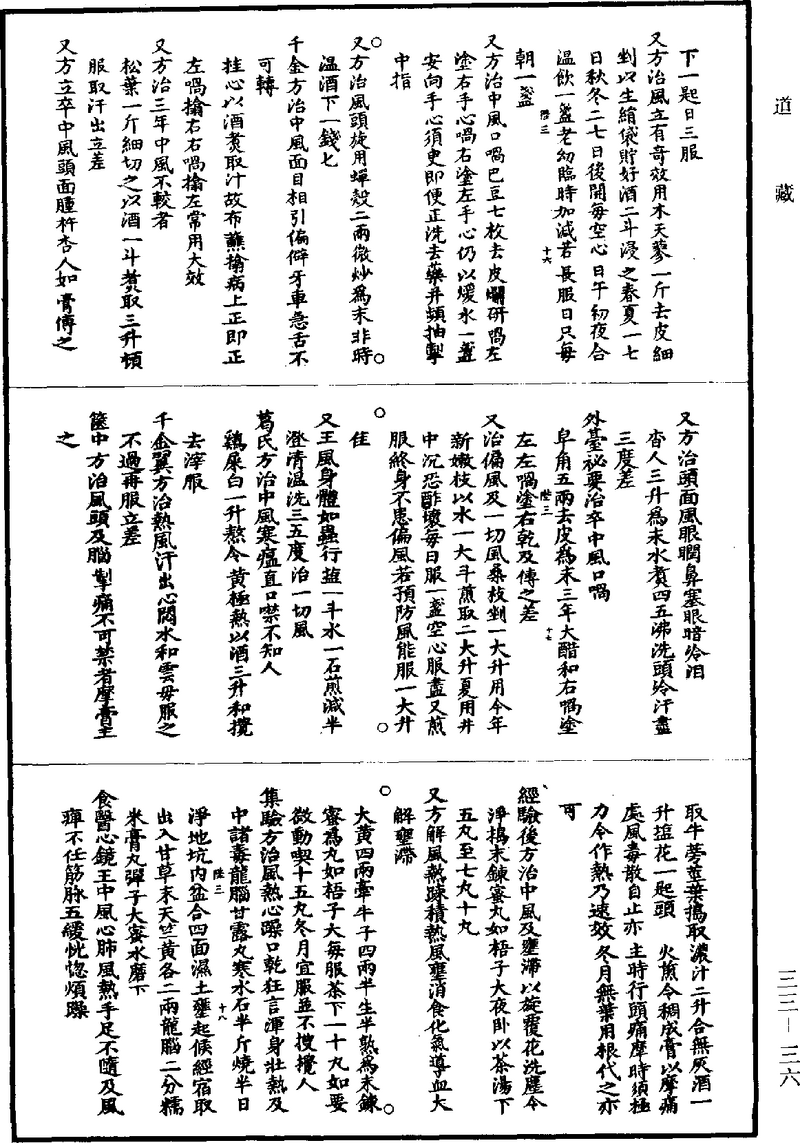 道藏
下一匙日三服
又方治風立有奇效用木天蓼一斤去皮細
剉以生絹袋貯好酒二斗浸之春夏一七
日秋冬二七日後開每空心日午初夜合
溫飲一盞老幼臨時加減若長服日只每
朝一盞
陛三
十六
又方治中風口喎巴豆七枚去皮爛研喎左
塗右手心喎右塗左手心仍以煖水一盞
安向手心須臾即便正洗去藥并頻抽掣
中指
又方治風頭旋用蟬殼二兩微炒為末非時
溫酒下一錢匕
千金方治中風面目相引偏僻牙車急舌不
可轉
桂心以酒煑取汁故布蘸搨病上正即止
左喎搨右右喎搨左常用大效
又方治三年中風不較者
松葉一斤細切之以酒一斗煑取三升頓
服取汗出立差
又方立卒中風頭面腫杵杏人如膏傅之
又方治頭面風眼瞤鼻塞眼暗冷泪
杏人三升為末水煑四五沸洗頭冷汗盡
三度差
外臺祕要治卒中風口喎
皁角五兩去皮為末三年大醋和右喎塗
左左喎塗右乾及傅之差
陛三
十七
又治偏風及一切風桑枝剉一大升用今年
新嫩枝以水一大斗煎取二大升夏用井
中沉恐酢壞每日服一盞空心服盡又煎
服終身不患偏風若預防風能服一大升
佳
又王風身體如蟲行鹽一斗水一石煎減半
澄清溫洗三五度治一切風
葛氏方治中風寒瘟直口噤不知人
鷄屎白一升熬令黃極熱以酒三升和攪
去滓服
千金翼方治熱風汗出心悶水和雲母服之
不過再服立差
篋中方治風頭及腦掣痛不可禁者摩膏主
之
取牛蒡莖葉擣取濃汁二升合無灰酒一
升塩花一匙頭　火煎令稠成膏以摩痛
處風毒散自止亦　主時行頭痛摩時須極
力令作熱乃速效　冬月無葉用根代之亦
可
經驗後方治中風及壅滯以旋覆花洗塵令
淨搗末鍊蜜丸如梧子大夜卧以茶湯下
五丸至七丸十丸
又方解風熱疎積熱風壅消食化氣導血大
解壅滯
大黃四兩牽牛子四兩半生半熟為末鍊
蜜為丸如梧子大每服茶下一十丸如要
微動喫十五丸冬月宜服並不搜攪人
集驗方治風熱心躁口乾狂言渾身壯熱及
中諸毒龍腦甘露丸寒水石半斤燒半日
陛三
十八
淨地坑內盆合四面濕土壅起候經宿取
出入甘草末天竺黃各二兩龍腦二分糯
米膏丸彈子大蜜水磨下
食醫心鏡王中風心肺風熱手足不隨及風
痺不任筋脉五緩恍惚煩躁
三三—一三六